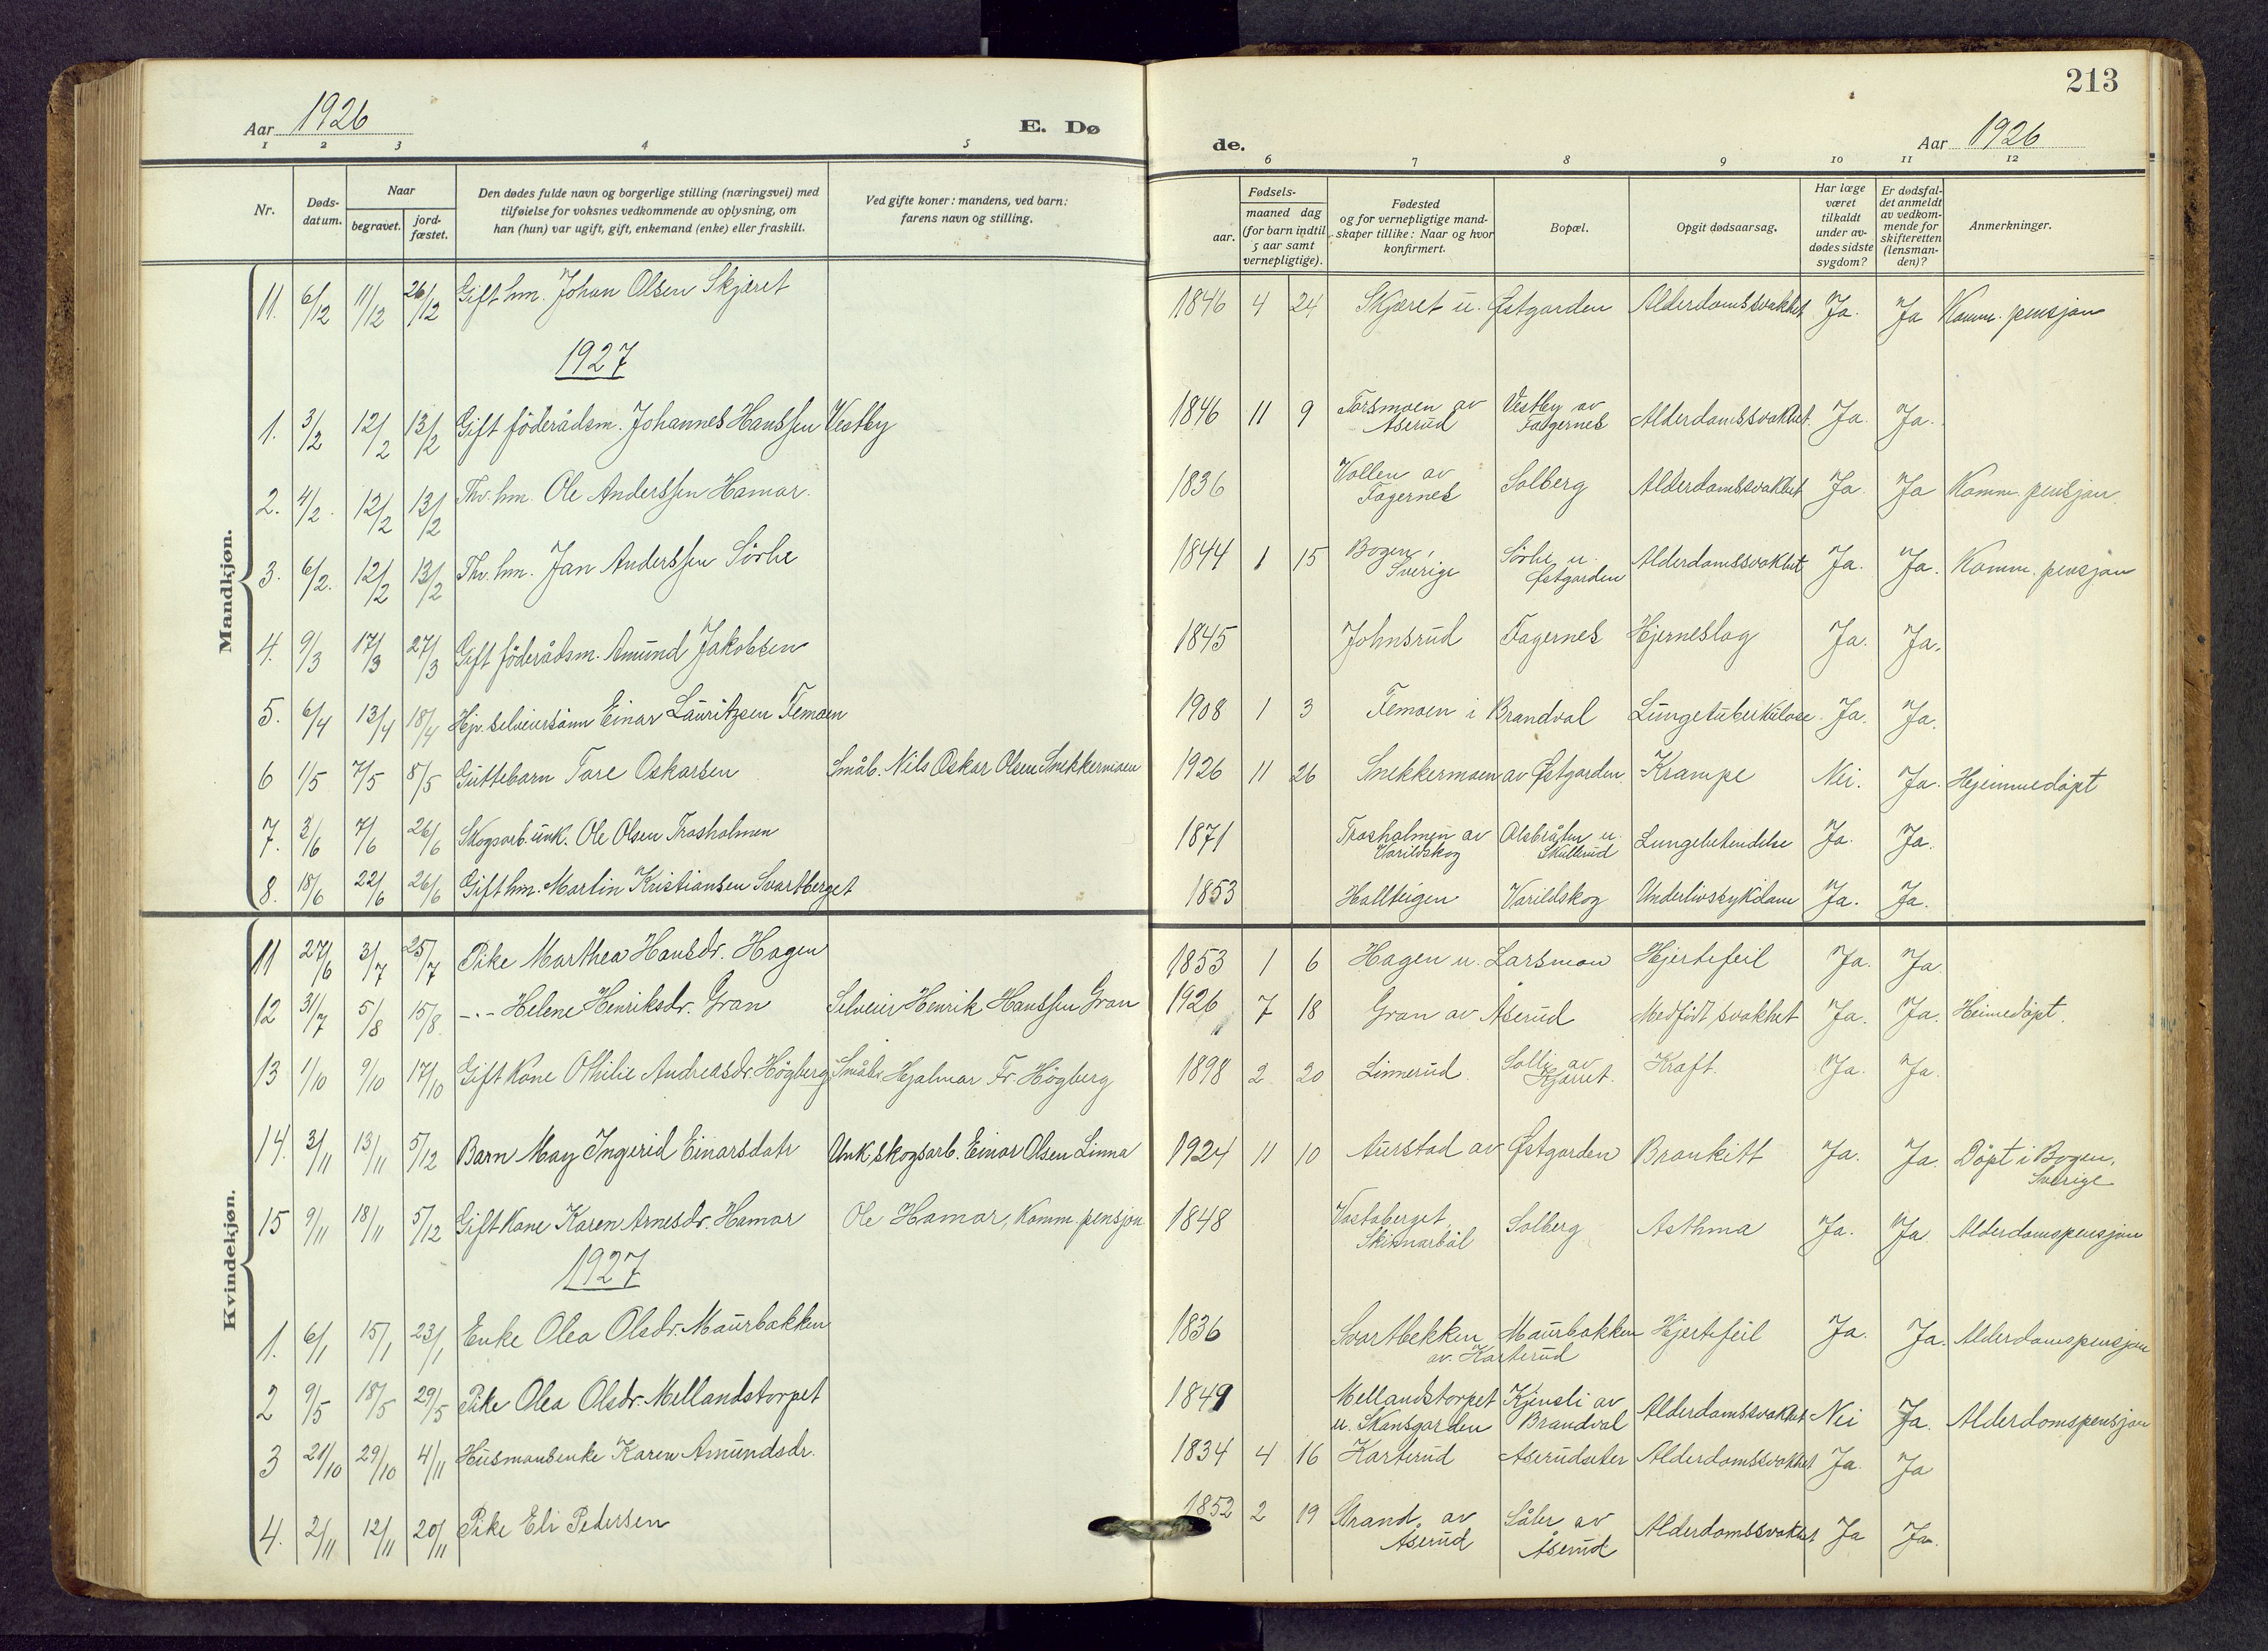 213
Aar 1926
E. Dø
de.
Aar 1926
1 2 3 4 5
6 7 8 9 10 11 12
Nr.
Døds-
datum.
Naar
begravet.
jord-
fæstet.
Den dødes fulde navn og borgerlige stilling (næringsvei) med
tilføielse for voksnes vedkommende av oplysning, om
han (hun) var ugift, gift, enkemand (enke) eller fraskilt.
Ved gifte koner: mandens, ved barn:
farens navn og stilling.
Fødsels-
aar.
maaned dag
(for barn indtil
5 aar samt
vernepligtige).
Fødested
og for vernepligtige mand-
skaper tillike: Naar og hvor
konfirmert.
Bopæl.
Opgit dødsaarsag.
Har læge
været
tilkaldt
under av-
dødes sidste
sygdom?
Er dødsfal-
det anmeldt
av vedkom-
mende for
skifteretten
(lensman-
den)?
Anmerkninger.
Mandkjøn.
11. 6/12 11/12 26/12 Gift hm. Johan Olsen Skjæret 1846 4 24 Skjæret u. Østgarden Alderdomssvakhet Ja. Ja Komm. pensjon
1927
1. 3/2 12/2 13/2 Gift föderådsm. Johannes Hanssen Vestby 1846 11 9 Forsmoen av Åserud Vestby av Fagernes Alderdomssvakhet. Ja. Ja.
2. 4/2. 12/2 13/2 Thv. hm. Ole Anderssen Hamar. 1836 Vollen av Fagernes Solberg Alderdomssvakhet Ja. Ja Komm. pensjon.
3. 6/2. 12/2 13/2 Thv. hm. Jan Anderssen Sörhe 1844 1 15 Bogen, Sverige Sörhe u. Østgarden Alderdomssvakhet Ja. Ja. Komm. pensjon
4. 9/3 17/3 27/3 Gift föderådsm. Amund Jakobsen 1845 Johnsrud Fagernes Hjerneslag Ja. Ja.
5. 6/4 13/4 18/4 Hjv. selveiersönn Einar Lauritzsen Temoen 1908 1 3 Temoen i Brandval Lungetuberkulose. Ja. Ja.
6 1/5 7/5 8/5 Guttebarn Tore Oskarsen Småb. Nils Oskar Olsen Snekkermoen 1926 11 26 Snekkermoen av Østgarden Krampe Nei. Ja. Hjemmedöpt
7. 2/6 7/6 26/6 Skogsarb. unk. Ole Olsen Trosholmen 1871 Trosholmen av Varildskog Olsbråten u. Skullerud Lungebetendelse Ja. Ja.
8. 18/6 22/6 26/6 Gift hm. Martin Kristiansen Svartberget 1853 Hallteigen Varildskog Underlivssykdom Ja. Ja.
Kvindekjøn.
11 27/6 3/7 25/7 Pike Marthea Hansdr. Hagen 1853 1 6 Hagen u. Larsmon Hjertefeil Ja. Ja.
12 31/7 5/8 15/8. -.- Helene Henriksdr. Gran Selveier Henrik Hanssen Gran 1926 7 18 Gran av Åserud Medfödt svakhet Ja. Ja. Heimedöpt.
13 1/10 9/10 17/10 Gift kone Othilie Andreasdr. Högberg Småbr. Hjalmar Fr. Högberg 1898 2 20 Linnerud. Solli av Skjæret. Kræft. Ja. Ja.
14. 3/11 13/11 5/12 Barn May Ingerid Einarsdatr Unk. skogsarb. Einar Olsen Linna 1924 11 10 Aurstad av Østgarden Bronkitt Ja. Ja. Döpt i Bogen, Sverige
15 9/11 18/11 5/12 Gift kone Karen Arnesdr. Hamar Ole Hamar, Komm. pensjon 1848 Vastaberget, Skinnarböl Solberg Asthma Ja. Ja Alderdomspensjon
1927
1. 6/1 15/1 23/1 Enke Olea Olsdr. Maurbakken 1836 Svartbekken av. Karterud Maurbakken Hjertefeil Ja. Ja. Alderdomspensjon
2 9/5 18/5 29/5 Pike Olea Olsdr. Mellandstorpet 1849 Mellandstorpet u. Skansgarden Kjensli av Brandval Alderdomssvakhet Nei Ja. Alderdomspensjon
3 21/10 29/10 4/11 Husmandsenke Karen Amundsdr. 1834 4 16 Karterud Aserudseter Alderdomssvakhet Ja. Ja
4. 2/11 12/11 20/11 Pike Eli Pedersen 1852 2 19 Strand av Åserud Såler av Åserud Alderdomssvakhet Ja Ja.